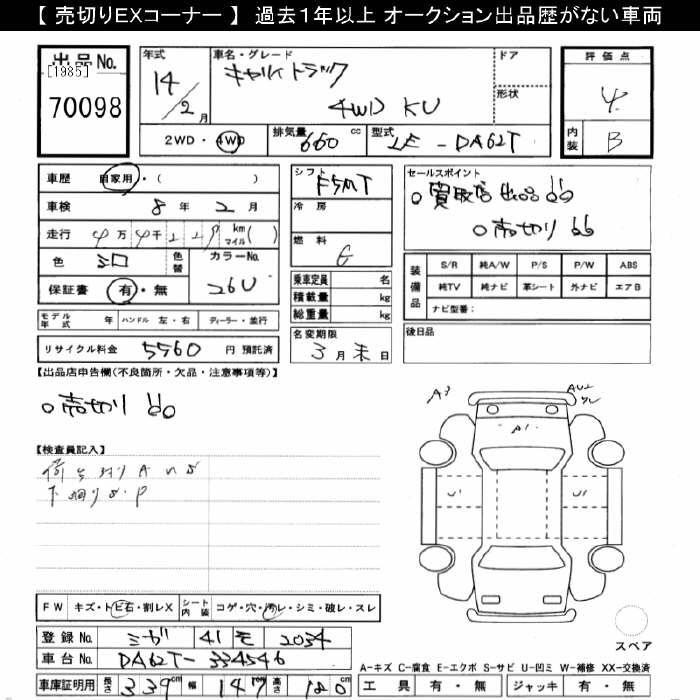 【 売切りEXコーナー 】 過去1年以上 オークション出品歴がない車両
出品No.
[1985]
70098
年式
14/2月
車名・グレード
キャリイトラック
4WD KU
ドア
形状
評価点
4
内装
B
2WD・4WD
排気量 660 cc
型式 LE-DA62T
車歴 自家用・( )
車検 8年2月
走行 4万4千229 km マイル( )
色 シロ 色替
カラーNo. 26U
保証書 有・無
モデル年式 年 ハンドル 左・右 ディーラー・並行
リサイクル料金 5560 円 預託済
シフト F5MT
冷房
燃料 G
乗車定員 名
積載量 kg
総重量 kg
名変期限
3月末日
セールスポイント
○買取店出品!!
○売切り!!
装備品
S/R 純A/W P/S P/W ABS
純TV 純ナビ 革シート 外ナビ エアB
ナビ型番:
後日品
【出品店申告欄(不良箇所・欠品・注意事項等)】
○売切り!!
【検査員記入】
A3
A1
U1
U1
FW キズ・トビ石・割レX シート内装 コゲ・穴・汚レ・シミ・破レ・スレ
登録No. ミガ 41 モ 2034
車台No. DA62T-334546
車庫証明用 長さ 339cm 幅 147cm 高さ 180cm
スペア
A-キズ C-腐食 E-エクボ S-サビ U-凹ミ W-補修 XX-交換済
工具 有・無 ジャッキ 有・無